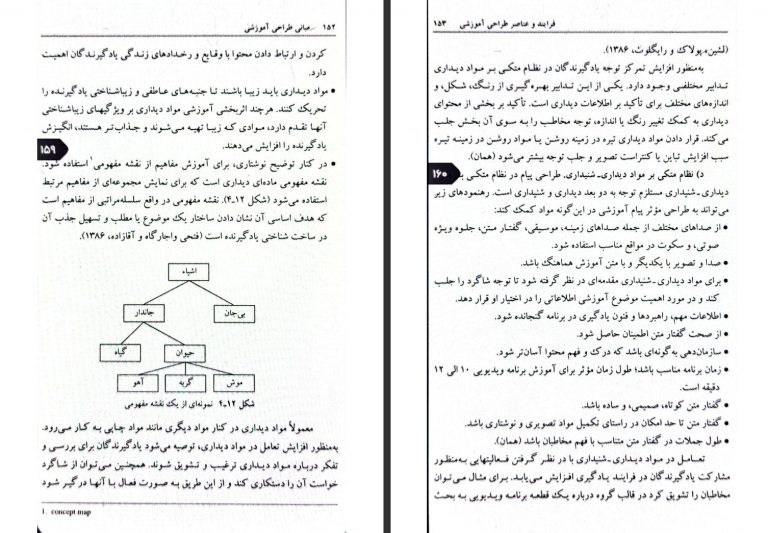 ۱۵۲ مبانی طراحی آموزشی
کردن و ارتباط دادن محتوا با وقایع و رخدادهای زندگی یادگیرندگان اهمیت
دارد.
• مواد دیداری باید زیبا باشند تا جنبه‌های عاطفی و زیباشناختی یادگیرنده را
تحریک کنند. هرچند اثربخشی آموزشی مواد دیداری بر ویژگیهای زیباشناختی
آنها تقدم دارد، موادی که زیبا تهیه می‌شوند و جذاب‌تر هستند، انگیزش
یادگیرنده را افزایش می‌دهند.
۱۵۹
• در کنار توضیح نوشتاری، برای آموزش مفاهیم از نقشه مفهومی۱ استفاده شود.
نقشه مفهومی ماده‌ای دیداری است که برای نمایش مجموعه‌ای از مفاهیم مرتبط
استفاده می‌شود (شکل ۱۲ـ۴). نقشه مفهومی در واقع سلسله‌مراتبی از مفاهیم است
که هدف اساسی آن نشان دادن ساختار یک موضوع یا مطلب و تسهیل جذب آن
در ساخت شناختی یادگیرنده است (فتحی واجارگاه و آقازاده، ۱۳۸۶).
اشیاء
جاندار
بی‌جان
گیاه
حیوان
آهو
گربه
موش
شکل ۱۲ـ۴ نمونه‌ای از یک نقشه مفهومی
معمولاً مواد دیداری در کنار مواد دیگری مانند مواد چاپی به کار می‌رود.
به‌منظور افزایش تعامل در مواد دیداری، توصیه می‌شود یادگیرندگان برای بررسی و
تفکر درباره مواد دیداری ترغیب و تشویق شوند. همچنین می‌توان از شاگرد
خواست آن را دستکاری کند و از این طریق به صورت فعال با آنها درگیر شود
1. concept map
فرایند و عناصر طراحی آموزشی ۱۵۳
(لشین، پولاک و رایگلوث، ۱۳۸۶).
به‌منظور افزایش تمرکز توجه یادگیرندگان در نظام متکی بر مواد دیداری
تدابیر مختلفی وجود دارد. یکی از این تدابیر بهره‌گیری از رنگ، شکل، و
اندازه‌های مختلف برای تأکید بر اطلاعات دیداری است. تأکید بر بخشی از محتوای
دیداری به کمک تغییر رنگ یا اندازه، توجه مخاطب را به سوی آن بخش جلب
می‌کند. قرار دادن مواد دیداری تیره در زمینه روشن یا مواد روشن در زمینه تیره
سبب افزایش تباین یا کنتراست تصویر و جلب توجه بیشتر می‌شود (همان).
۱۶۰
د) نظام متکی بر مواد دیداری‌ـ‌شنیداری. طراحی پیام در نظام متکی بر
دیداری‌ـ‌شنیداری مستلزم توجه به دو بعد دیداری و شنیداری است. رهنمودهای زیر
می‌تواند به طراحی مؤثر پیام آموزشی در این‌گونه مواد کمک کند:
• از صداهای مختلف از جمله صداهای زمینه، موسیقی، گفتار متن، جلوه ویژه
صوتی، و سکوت در مواقع مناسب استفاده شود.
• صدا و تصویر با یکدیگر و با متن آموزش هماهنگ باشد.
• برای مواد دیداری‌ـ‌شنیداری مقدمه‌ای در نظر گرفته شود تا توجه شاگرد را جلب
کند و در مورد اهمیت موضوع آموزشی اطلاعاتی را در اختیار او قرار دهد.
• اطلاعات مهم، راهبردها و فنون یادگیری در برنامه گنجانده شود.
• از صحت گفتار متن اطمینان حاصل شود.
• سازمان‌دهی به‌گونه‌ای باشد که درک و فهم محتوا آسان‌تر شود.
• زمان برنامه مناسب باشد؛ طول زمان مؤثر برای آموزش برنامه ویدیویی ۱۰ الی ۱۲
دقیقه است.
• گفتار متن کوتاه، صمیمی، و ساده باشد.
• گفتار متن تا حد امکان در راستای تکمیل مواد تصویری و نوشتاری باشد.
• طول جملات در گفتار متن متناسب با فهم مخاطبان باشد (همان).
تعامل در مواد دیداری‌ـ‌شنیداری با در نظر گرفتن فعالیتهایی به‌منظور
مشارکت یادگیرندگان در فرایند یادگیری افزایش می‌یابد. برای مثال می‌توان
مخاطبان را تشویق کرد در قالب گروه درباره یک قطعه برنامه ویدیویی به بحث